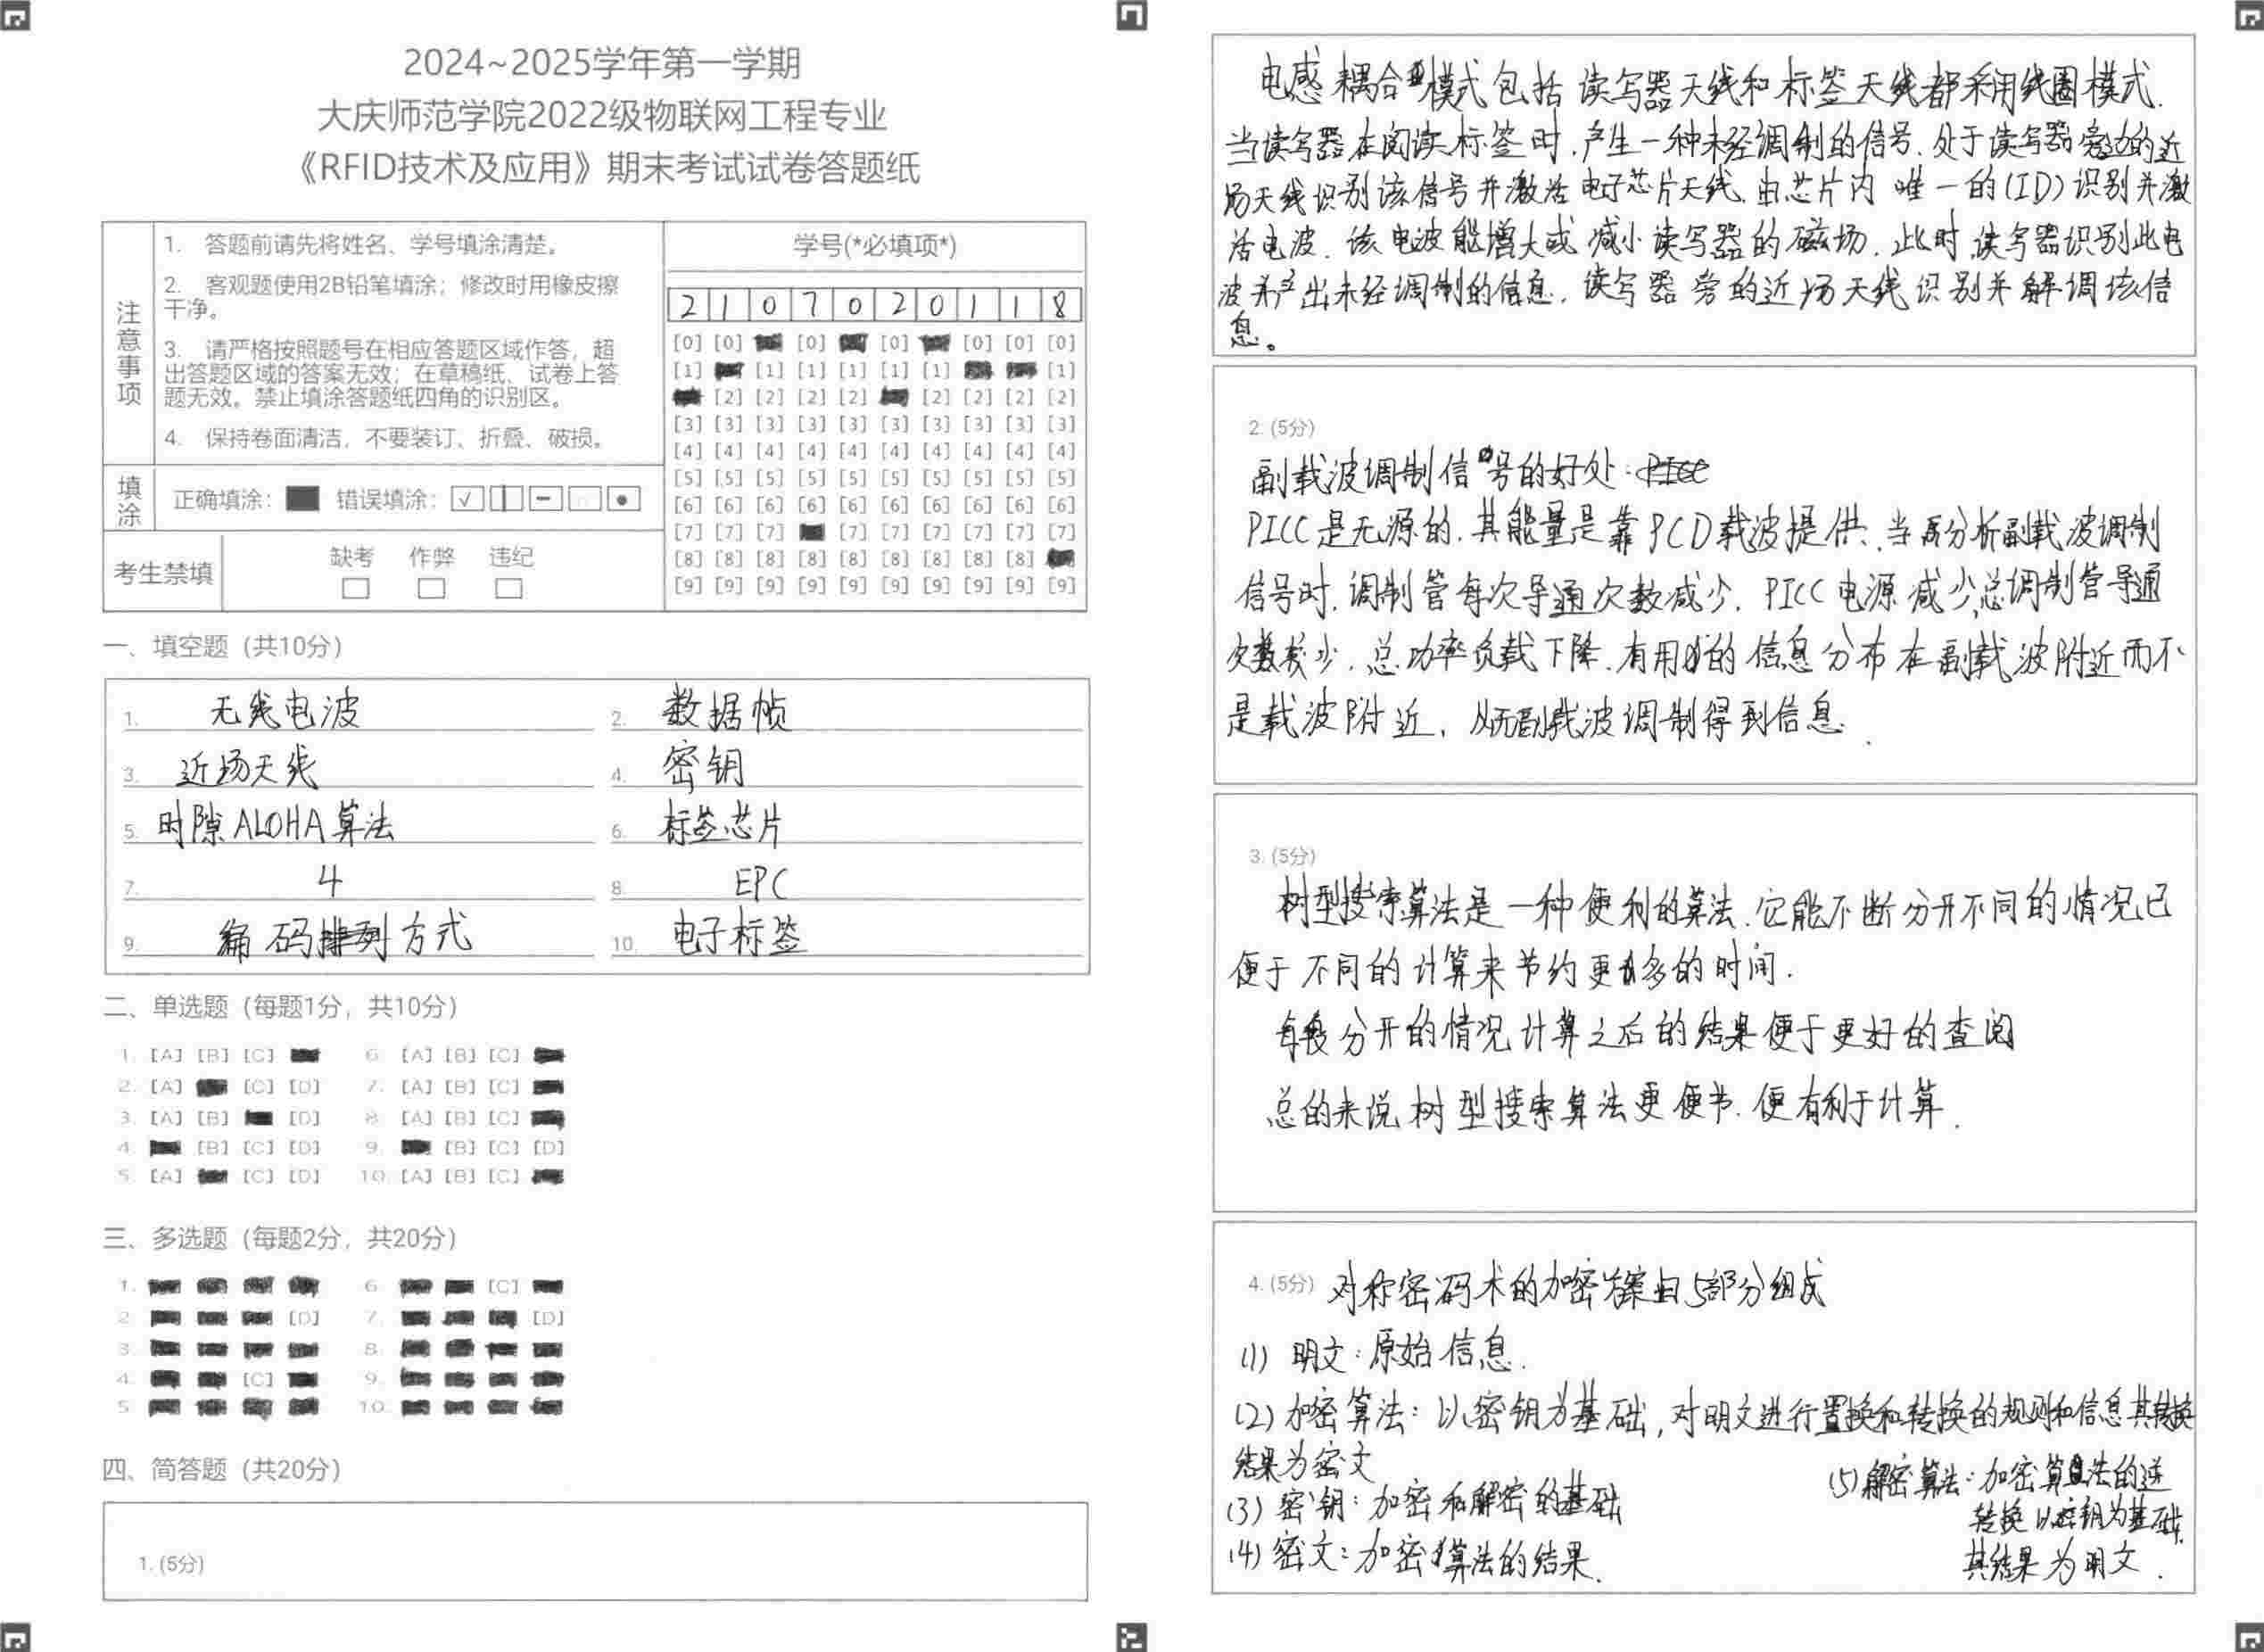 2024~2025学年第一学期
大庆师范学院2022级物联网工程专业
《RFID技术及应用》期末考试试卷答题纸
注意事项
1. 答题前请先将姓名、学号填涂清楚。
2. 客观题使用2B铅笔填涂；修改时用橡皮擦
干净。
3. 请严格按照题号在相应答题区域作答，超
出答题区域的答案无效；在草稿纸、试卷上答
题无效。禁止填涂答题纸四角的识别区。
4. 保持卷面清洁，不要装订、折叠、破损。
填涂 正确填涂： 错误填涂：
考生禁填 缺考 作弊 违纪
学号(*必填项*)
2 1 0 7 0 2 0 1 1 8
[0] [0] [0] [0] [0] [0] [0]
[1] [1] [1] [1] [1] [1] [1]
[2] [2] [2] [2] [2] [2] [2] [2]
[3] [3] [3] [3] [3] [3] [3] [3] [3] [3]
[4] [4] [4] [4] [4] [4] [4] [4] [4] [4]
[5] [5] [5] [5] [5] [5] [5] [5] [5] [5]
[6] [6] [6] [6] [6] [6] [6] [6] [6] [6]
[7] [7] [7] [7] [7] [7] [7] [7] [7]
[8] [8] [8] [8] [8] [8] [8] [8] [8]
[9] [9] [9] [9] [9] [9] [9] [9] [9] [9]
一、填空题（共10分）
1. 无线电波 2. 数据帧
3. 近场天线 4. 密钥
5. 时隙ALOHA算法 6. 标签芯片
7. 4 8. EPC
9. 编码排列方式 10. 电子标签
二、单选题（每题1分，共10分）
1. [A] [B] [C] 6. [A] [B] [C]
2. [A] [C] [D] 7. [A] [B] [C]
3. [A] [B] [D] 8. [A] [B] [C]
4. [B] [C] [D] 9. [B] [C] [D]
5. [A] [C] [D] 10. [A] [B] [C]
三、多选题（每题2分，共20分）
1. 6. [C]
2. [D] 7. [D]
3. 8.
4. [C] 9.
5. 10.
四、简答题（共20分）
1. (5分)
电感耦合型模式包括读写器天线和标签天线都采用线圈模式.
当读写器在阅读标签时.产生一种未经调制的信号.处于读写器旁边的近
场天线识别该信号并激活电子芯片天线.由芯片内唯一的(ID)识别并激
活电波.该电波能增大或减小读写器的磁场.此时,读写器识别此电
波并产出未经调制的信息.读写器旁的近场天线识别并解调该信
息。
2. (5分)
副载波调制信号的好处:
PICC是无源的.其能量是靠PCD载波提供.当再分析副载波调制
信号时.调制管每次导通次数减少.PICC电源减少,总调制管导通
次数较少.总功率负载下降.有用的信息分布在副载波附近而不
是载波附近,从而副载波调制得到信息.
3. (5分)
树型搜索算法是一种便利的算法.它能不断分开不同的情况已
便于不同的计算来节约更多的时间.
每段分开的情况计算之后的结果便于更好的查阅
总的来说树型搜索算法更便书.便有利于计算.
4. (5分) 对称密码术的加密方案由5部分组成
(1) 明文:原始信息.
(2) 加密算法:以密钥为基础,对明文进行置换和转换的规则和信息其转换
结果为密文
(3) 密钥:加密和解密的基础
(4) 密文:加密算法的结果.
(5) 解密算法:加密算法的逆
转换 以密钥为基础.
其结果为明文.